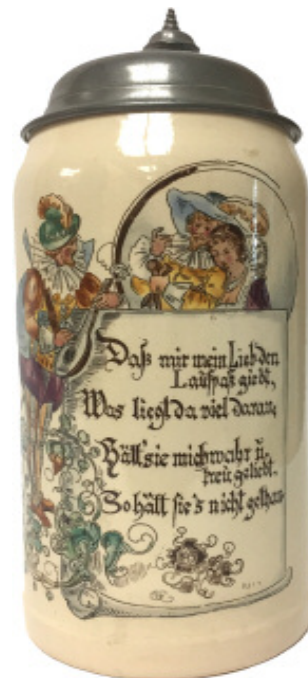 Daß mir mein Lieb den
Laufpaß giebt,
Was liegt da viel daran,
Hätt' sie mich wahr u.
treu geliebt.
So hätt sie's nicht gethan